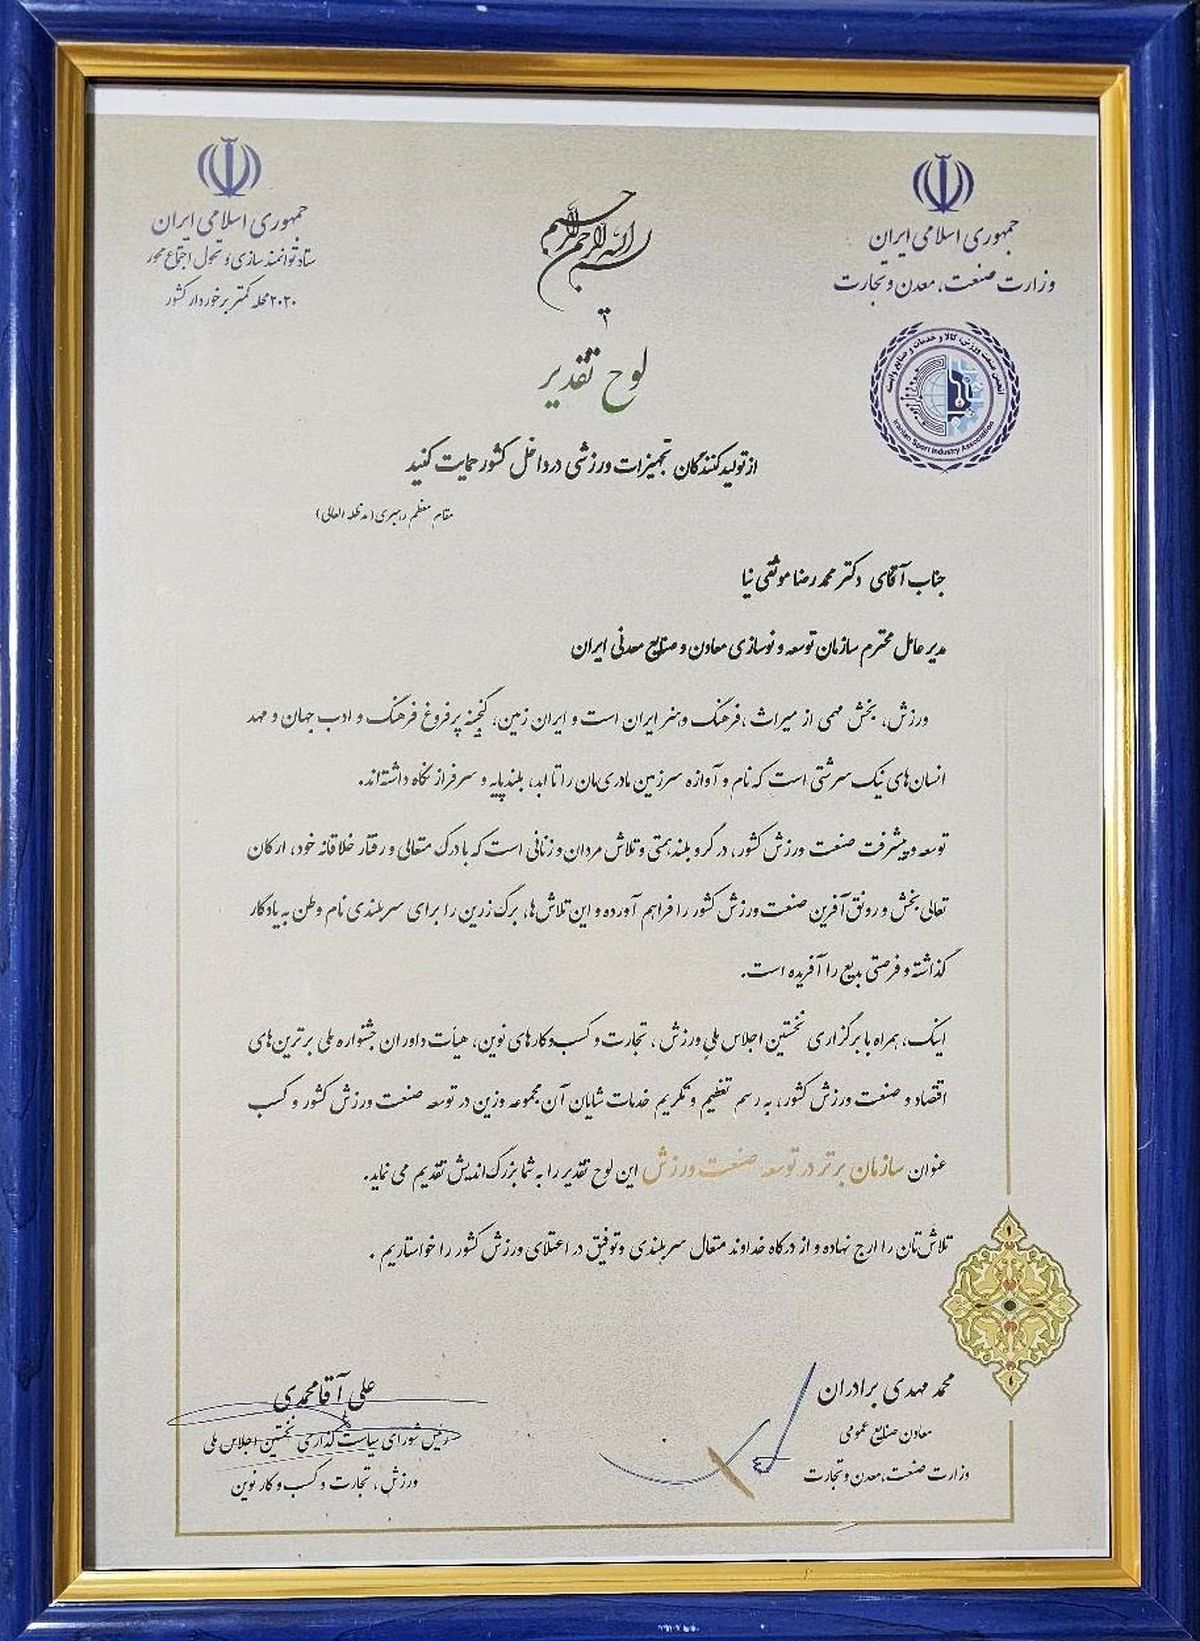 جمهوری اسلامی ایران
وزارت صنعت، معدن و تجارت
انجمن صنعت ورزش، کالا و خدمات و صنایع وابسته
Iranian Sport Industry Association
بسم الله الرحمن الرحیم
جمهوری اسلامی ایران
ستاد توانمندسازی و تحول اجتماع محور
۲۰۲۰ محله کمتر برخوردار کشور
لوح تقدیر
از تولیدکنندگان تجهیزات ورزشی در داخل کشور حمایت کنید
مقام معظم رهبری (مدظله العالی)
جناب آقای دکتر محمدرضا موثقی نیا
مدیرعامل محترم سازمان توسعه و نوسازی معادن و صنایع معدنی ایران
ورزش، بخش مهمی از میراث، فرهنگ و هنر ایران است و ایران زمین، گنجینه پرفروغ فرهنگ و ادب جهان و مهد
انسان‌های نیک سرشتی است که نام و آوازه سرزمین مادری‌مان را تا ابد، بلندپایه و سرفراز نگاه داشته‌اند.
توسعه و پیشرفت صنعت ورزش کشور، در گرو بلندهمتی و تلاش مردان و زنانی است که با درک متعالی و رفتار خلاقانه خود، ارکان
تعالی بخش و رونق آفرین صنعت ورزش کشور را فراهم آورده و این تلاش‌ها، برگ زرین را برای سربلندی نام وطن به یادگار
گذاشته و فرصتی بدیع را آفریده است.
اینک، همراه با برگزاری نخستین اجلاس ملی ورزش، تجارت و کسب‌وکارهای نوین، هیأت داوران جشنواره ملی برترین‌های
اقتصاد و صنعت ورزش کشور، به رسم تعظیم و تکریم خدمات شایان آن مجموعه وزین در توسعه صنعت ورزش کشور و کسب
عنوان سازمان برتر در توسعه صنعت ورزش این لوح تقدیر را به شما بزرگ‌اندیش تقدیم می نماید.
تلاش‌تان را ارج نهاده و از درگاه خداوند متعال سربلندی و توفیق در اعتلای ورزش کشور را خواستاریم .
محمد مهدی برادران
معاون صنایع عمومی
وزارت صنعت، معدن و تجارت
علی آقامحمدی
رئیس شورای سیاست گذاری نخستین اجلاس ملی
ورزش، تجارت و کسب و کار نوین